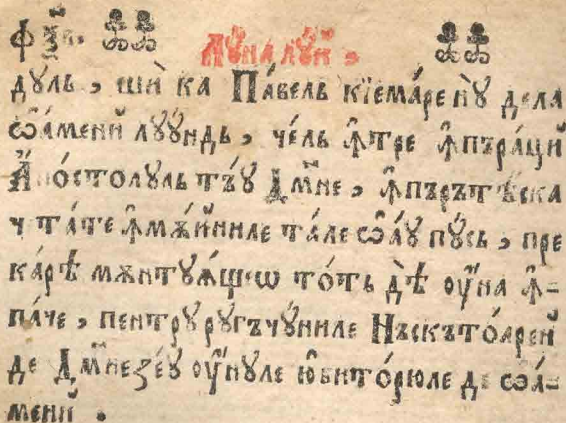 фѯв. Лꙋ́на лꙋ́й,
дꙋ́ль, шѝ ка Па́вель кїема́ре нꙋ дела
ѡ҆а́менй лꙋꙋндь, че́ль ꙟ҆тре ꙟ҆пъра́ци
А҆по́столꙋль тъ́ꙋ Дм҃не, ꙟ҆пъръте́ска
чта́те ꙟ҆мѫ́йниле та́ле ѡ҆а́ꙋ пꙋ́сь, пре
ка́рѣ мѫнтꙋѧ́щеѡ то́ть дѣ̀ оу҆́на ꙟ҆-
па́че, пентрꙋ рꙋгъчꙋ́ниле Нъскъто́арей
де Дм҃незе́ꙋ оу҆́нꙋле ю҆бито́рюле де ѡ҆а́-
менй.